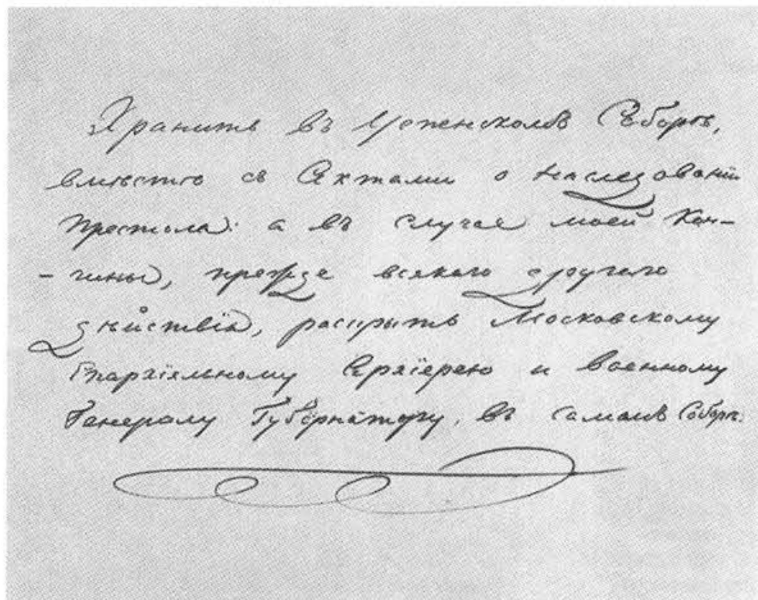 Хранить въ Успенскомъ Соборѣ,
вмѣстѣ съ Актами о наслѣдованіи
престола: а въ случае моей Кон-
-чины, прежде всякаго другаго
дѣйствія, раскрыть Московскому
Епархіяльному Архіерею и военному
Генералу Губернатору, въ самомъ Соборѣ.